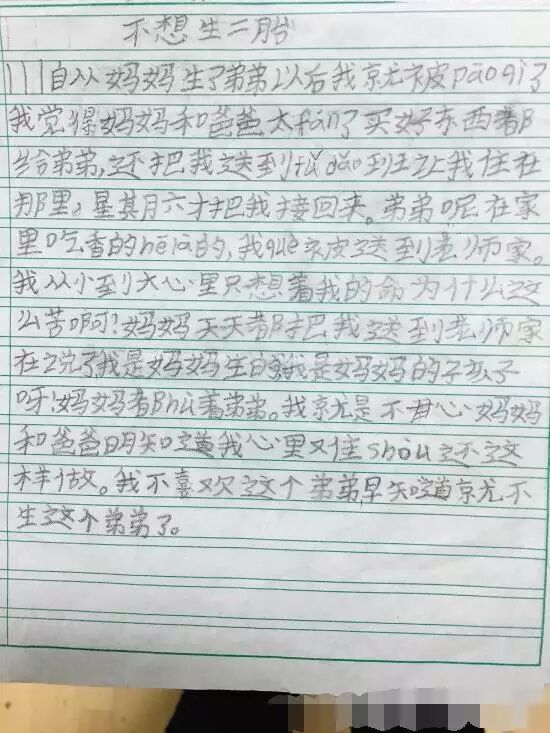 不想生二胎
111自从妈妈生了弟弟以后我就被pāoqì了
我觉得妈妈和爸爸太fán了买好东西都
给弟弟,还把我送到fǔdǎo班让我住在
那里。星其月六才把我接回来。弟弟呢在家
里吃香的hēlà的,我què被送到老师家。
我从小到大心里只想着我的命为什么这
么苦啊!妈妈天天都把我送到老师家
在说了我是妈妈生的我是妈妈的孩子
呀!妈妈都hù着弟弟。我就是不甘心妈妈
和爸爸明知道我心里又住shòu还这
样做。我不喜欢这个弟弟早知道就不
生这个弟弟了。